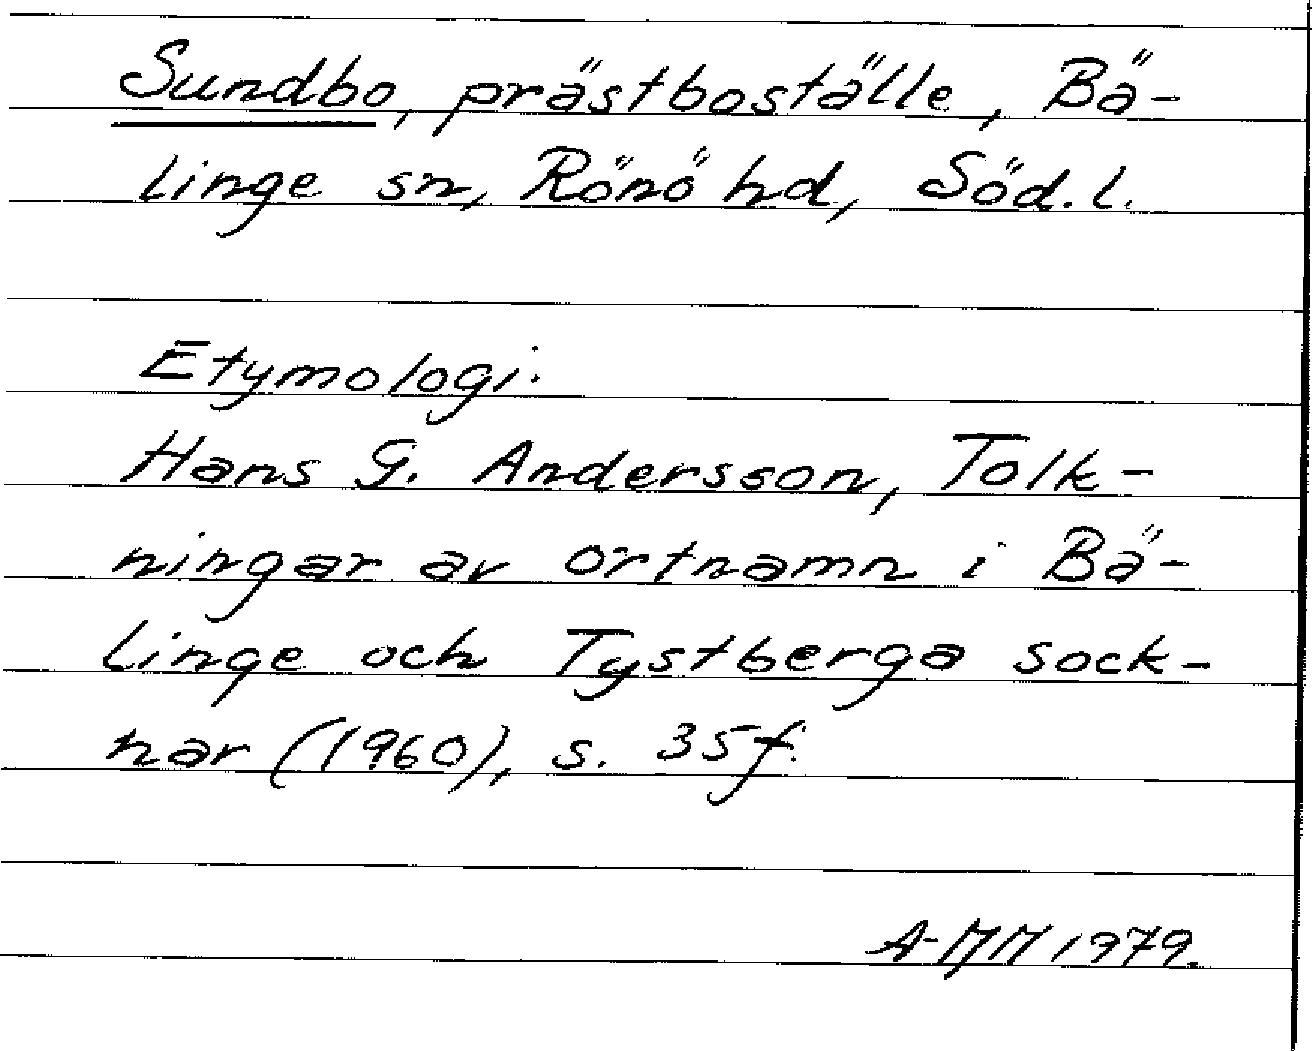 Sundbo, prästboställe, Bä-
linge sn, Rönö hd, Söd. l.
Etymologi:
Hans G. Andersson, Tolk-
ningar av ortnamn i Bä-
linge och Tystberga sock-
nar (1960), s. 35 f.
A-MM 1979.